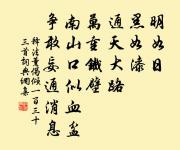 明如日
黑如漆
通天大路
萬重鐵壁
南山口似血盆
爭敢妄通消息
釋法薰偈頌一百三十
三首詞典網集